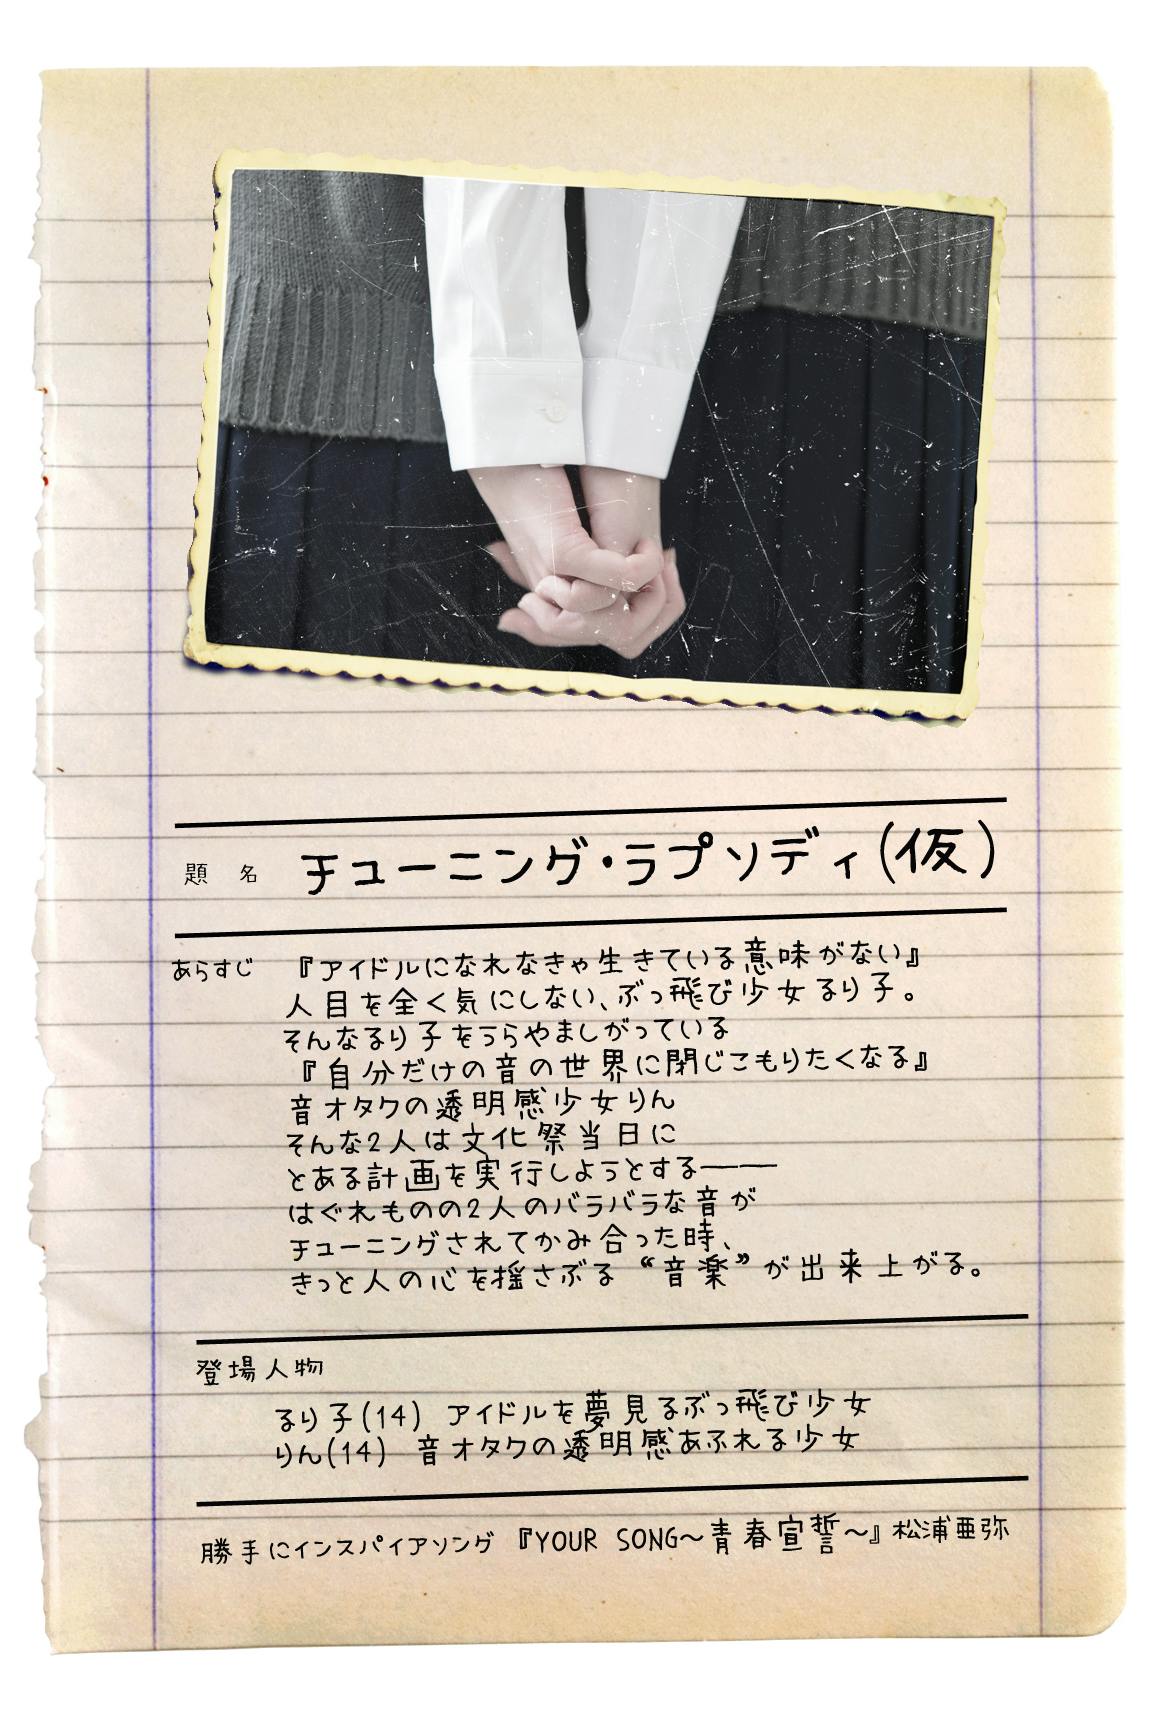 題 名 チューニング・ラプソディ(仮)
あらすじ 『アイドルになれなきゃ生きている意味がない』
人目を全く気にしない、ぶっ飛び少女るり子。
そんなるり子をうらやましがっている
『自分だけの音の世界に閉じこもりたくなる』
音オタクの透明感少女りん
そんな2人は文化祭当日に
とある計画を実行しようとする———
はぐれものの2人のバラバラな音が
チューニングされてかみ合った時、
きっと人の心を揺さぶる “音楽”が出来上がる。
登場人物
るり子(14) アイドルを夢見るぶっ飛び少女
りん(14) 音オタクの透明感あふれる少女
勝手にインスパイアソング 『YOUR SONG～青春宣誓～』松浦亜弥